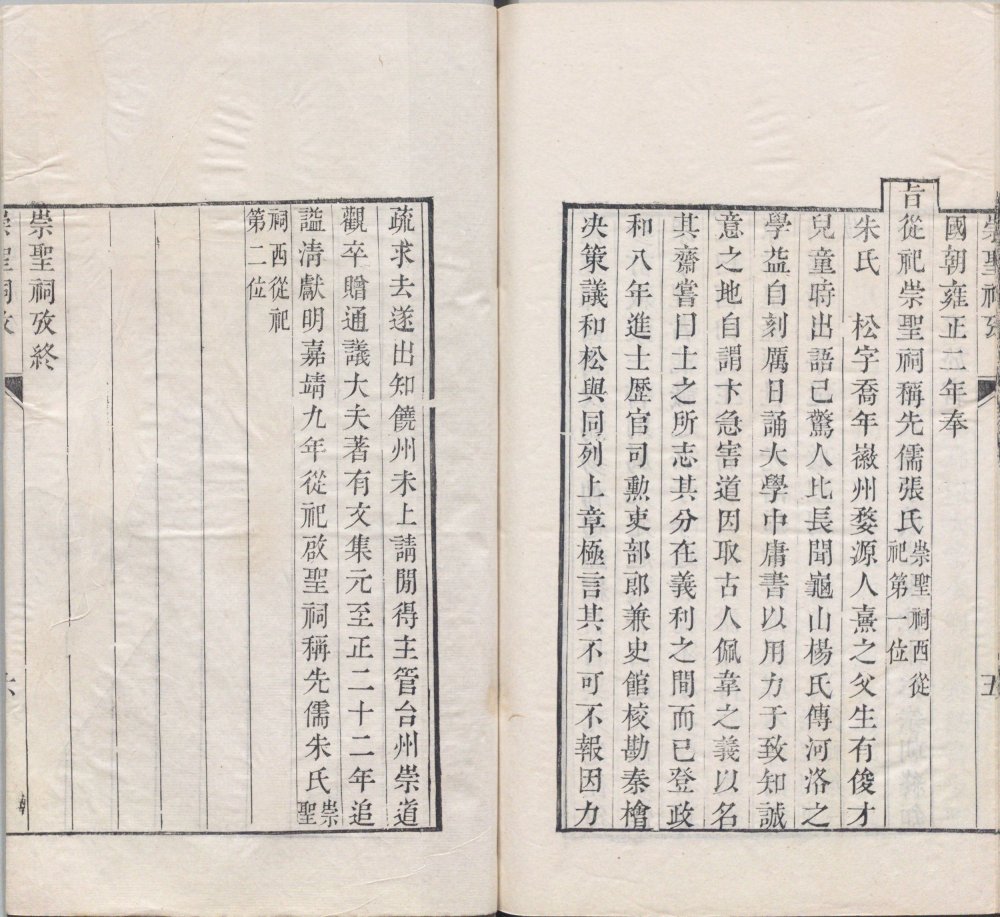 崇聖祠攷
五
國朝雍正二年奉
旨從祀崇聖祠稱先儒張氏崇聖祠西從祀第一位
朱氏　松字喬年徽州婺源人熹之父生有俊才
兒童時出語已驚人比長聞龜山楊氏傳河洛之
學益自刻厲日誦大學中庸書以用力于致知誠
意之地自謂卞急害道因取古人佩韋之義以名
其齋嘗曰士之所志其分在義利之間而已登政
和八年進士歷官司勲吏部郎兼史館校勘秦檜
决策議和松與同列上章極言其不可不報因力
疏求去遂出知饒州未上請閒得主管台州崇道
觀卒贈通議大夫著有文集元至正二十二年追
謚清獻明嘉靖九年從祀啟聖祠稱先儒朱氏崇聖
祠西從祀第二位
崇聖祠攷終
崇聖祠攷
六